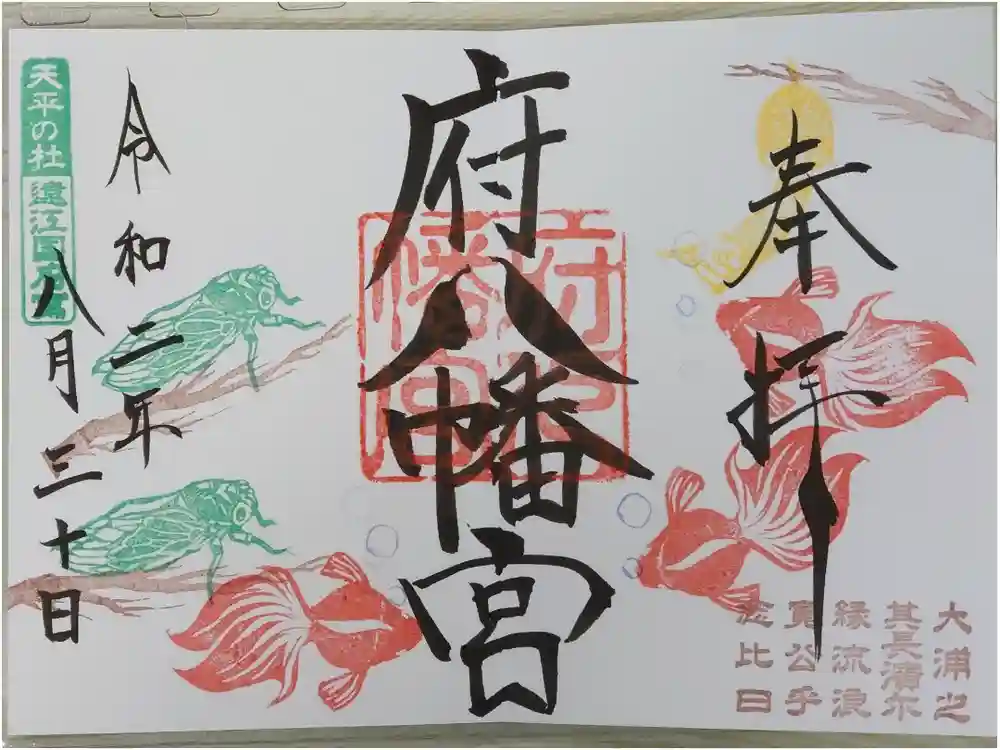 奉拝
大浦之
其長濱尓
縁流浪
寛公乎
念比日
府八幡宮
府八
幡宮
令和二年
八月三十日
天平の杜
遠江国